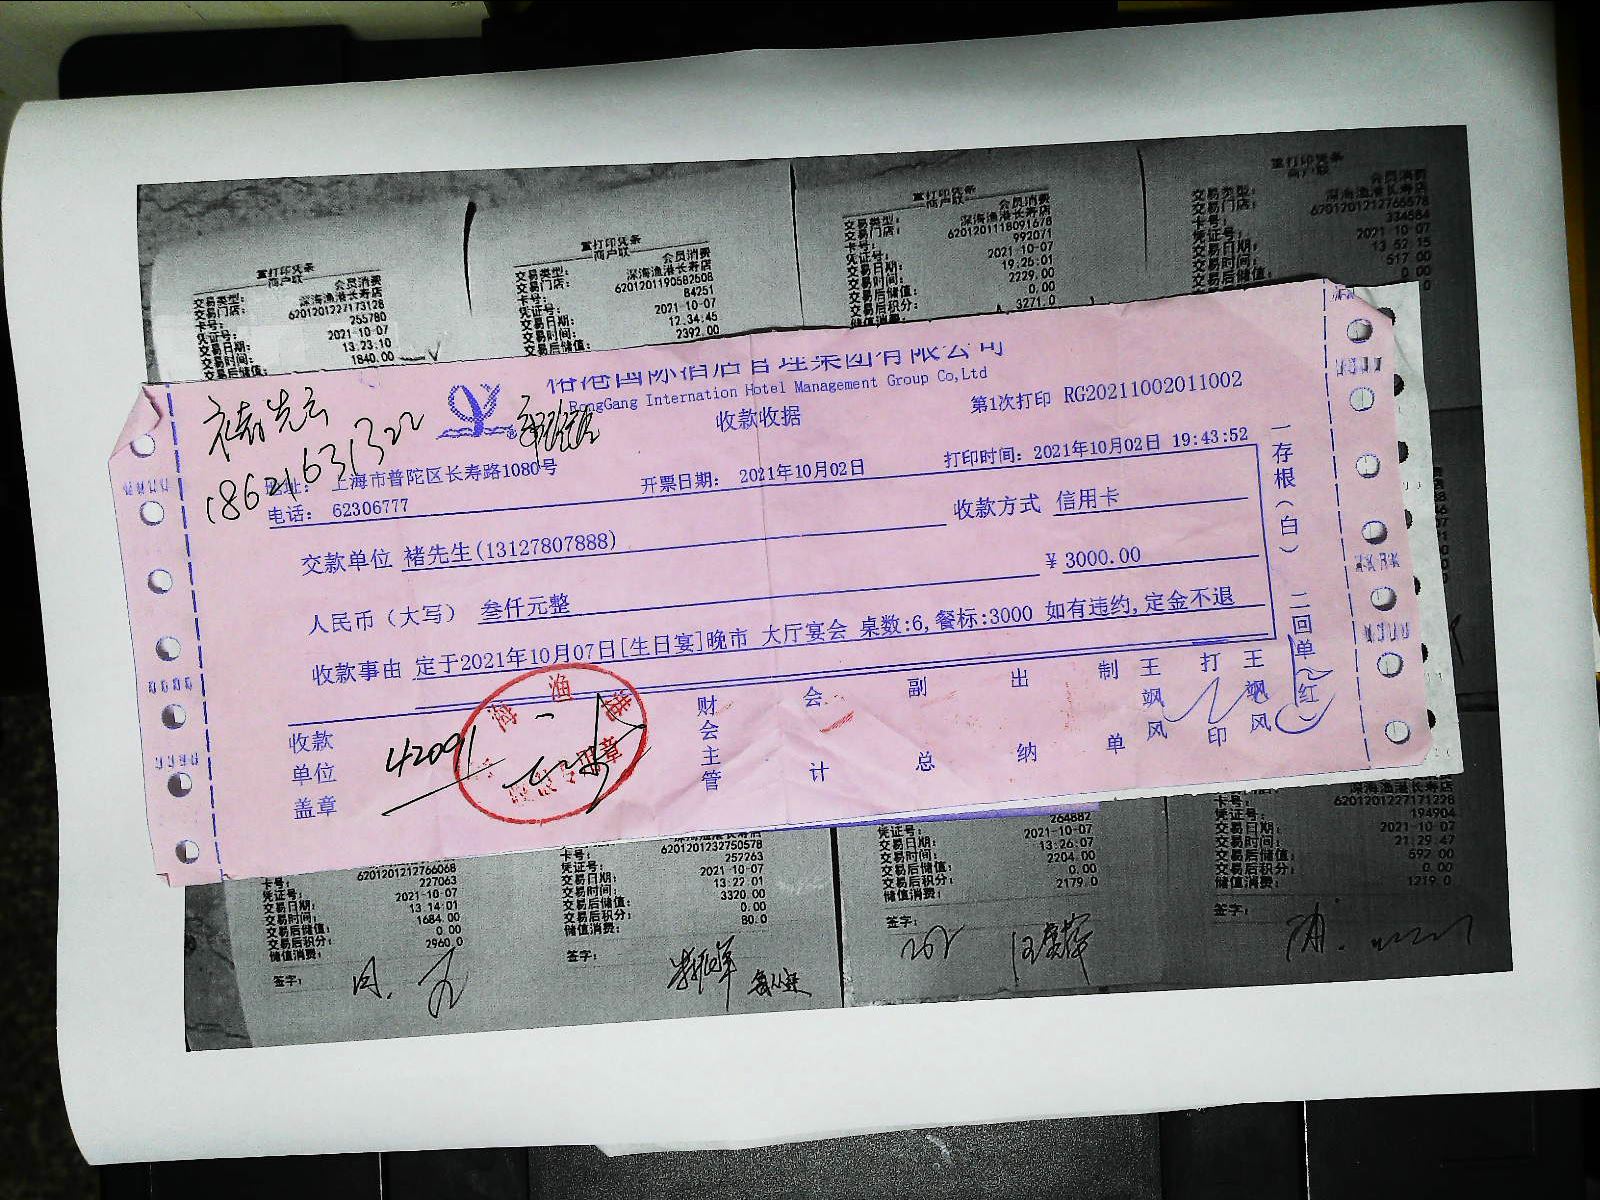 重打印凭条
商户联
交易类型： 会员消费
交易门店： 深海渔港长寿店
卡号： 6201201227173128
凭证号： 255780
交易日期： 2021-10-07
交易时间： 13:23:10
1840.00
重打印凭条
商户联
交易类型： 会员消费
交易门店： 深海渔港长寿店
卡号： 6201201190582608
凭证号： 84251
交易日期： 2021-10-07
交易时间： 12:34:45
交易后储值： 2392.00
重打印凭条
商户联
交易类型： 会员消费
交易门店： 深海渔港长寿店
卡号： 6201201118091678
凭证号： 992071
交易日期： 2021-10-07
交易时间： 19:26:01
交易后储值： 2229.00
交易后积分： 0.00
储值消费： 3271.0
重打印凭条
商户联
交易类型： 会员消费
交易门店： 深海渔港长寿店
卡号： 6201201212765578
凭证号： 334584
交易日期： 2021-10-07
交易时间： 13:52:15
交易后储值： 517.00
0.00
国际酒店管理集团有限公司
RongGang International Hotel Management Group Co,Ltd
收款收据
第1次打印 RG20211002011002
褚先生
18621631322
地址： 上海市普陀区长寿路1080号
电话： 62306777
开票日期： 2021年10月02日
打印时间：2021年10月02日 19:43:52
交款单位 褚先生(13127807888)
收款方式 信用卡
人民币（大写） 叁仟元整
￥3000.00
收款事由 定于2021年10月07日[生日宴]晚市 大厅宴会 桌数:6,餐标:3000 如有违约,定金不退
收款单位盖章
42091
财会主管
会计
副总
出纳
制单
王飒风
打印
王飒风
一存根（白） 二回单（红）
6201201212766068
卡号： 227063
凭证号： 2021-10-07
交易日期： 13:14:01
交易时间： 1684.00
交易后储值： 0.00
交易后积分： 2960.0
储值消费：
签字：
深海渔港长寿店
卡号： 6201201232750578
凭证号： 257263
交易日期： 2021-10-07
交易时间： 13:22:01
交易后储值： 3320.00
交易后积分： 0.00
储值消费： 80.0
签字：
264882
凭证号： 2021-10-07
交易日期： 13:26:07
交易时间： 2204.00
交易后储值： 0.00
交易后积分： 2179.0
储值消费：
签字：
深海渔港长寿店
卡号： 6201201227171228
凭证号： 194904
交易日期： 2021-10-07
交易时间： 21:29:47
交易后储值： 592.00
交易后积分： 0.00
储值消费： 1219.0
签字：